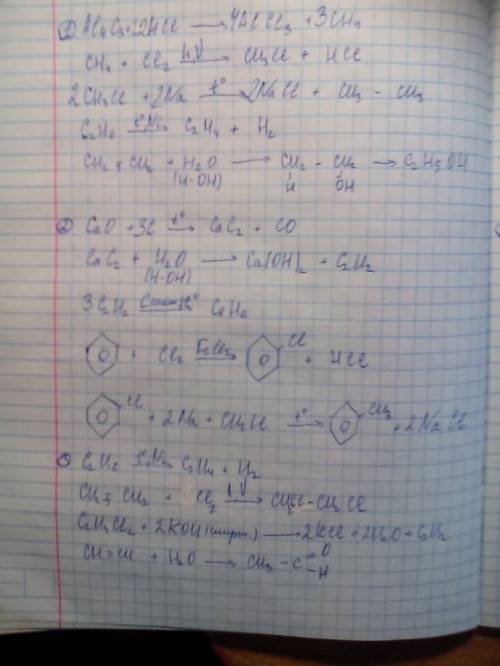 Al4C3 + 12HCl → 4AlCl3 + 3CH4
CH4 + Cl2 hν→ CH3Cl + HCl
2CH3Cl + 2Na t°→ 2NaCl + CH3 - CH3
C2H6 t°, Ni→ C2H4 + H2
CH2 = CH2 + H2O → CH2 - CH2 → C2H5OH
(H-OH) H OH
2) CaO + 3C t°→ CaC2 + CO
CaC2 + H2O → Ca(OH)2 + C2H2
(H-OH)
3C2H2 t°→ C6H6
+ Cl2 FeCl3→ Cl + HCl
Cl + 2Na + CH3Cl t°→ CH3 + 2NaCl
C2H6 t°, Ni→ C2H4 + H2
CH2 = CH2 + Cl2 hν→ CH2Cl-CH2Cl
C2H4Cl2 + 2KOH (спирт.) → 2KCl + 2H2O + C2H2
CH≡CH + H2O → CH3 - C =O -H